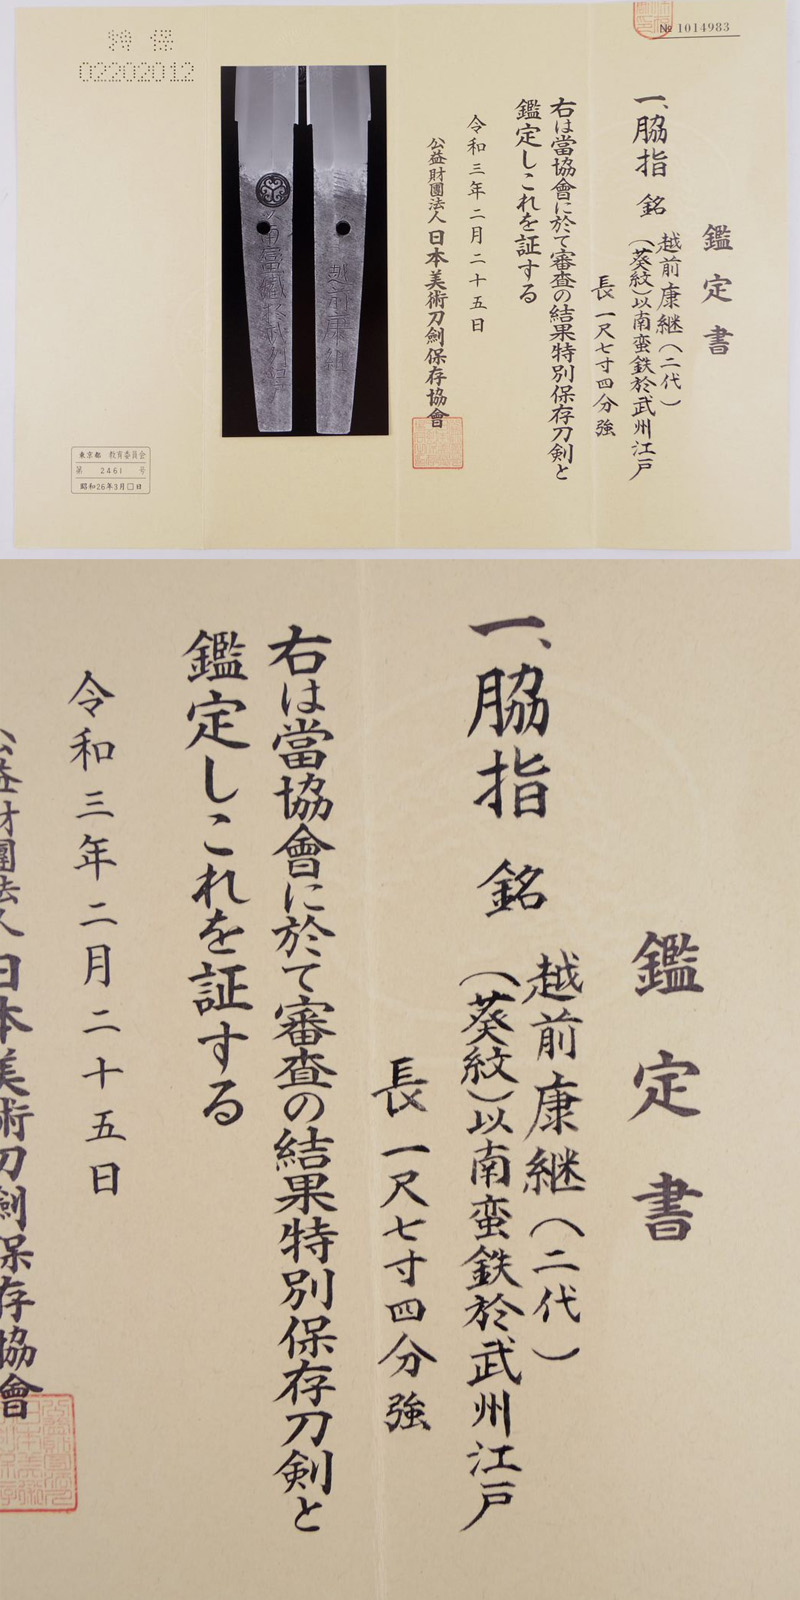 № 1014983
鑑定書
一、脇指 銘
越前康継（二代）
（葵紋）以南蛮鉄於武州江戸
長 一尺七寸四分強
右は當協會に於て審査の結果特別保存刀剣と
鑑定しこれを証する
令和三年二月二十五日
公益財團法人日本美術刀劍保存協會
越前康継
特 保
02202012
東京都 教育委員会
第 2461 号
昭和26年3月□日
鑑定書
一、脇指 銘
越前康継（二代）
（葵紋）以南蛮鉄於武州江戸
長 一尺七寸四分強
右は當協會に於て審査の結果特別保存刀剣と
鑑定しこれを証する
令和三年二月二十五日
公益財團法人日本美術刀劍保存協會